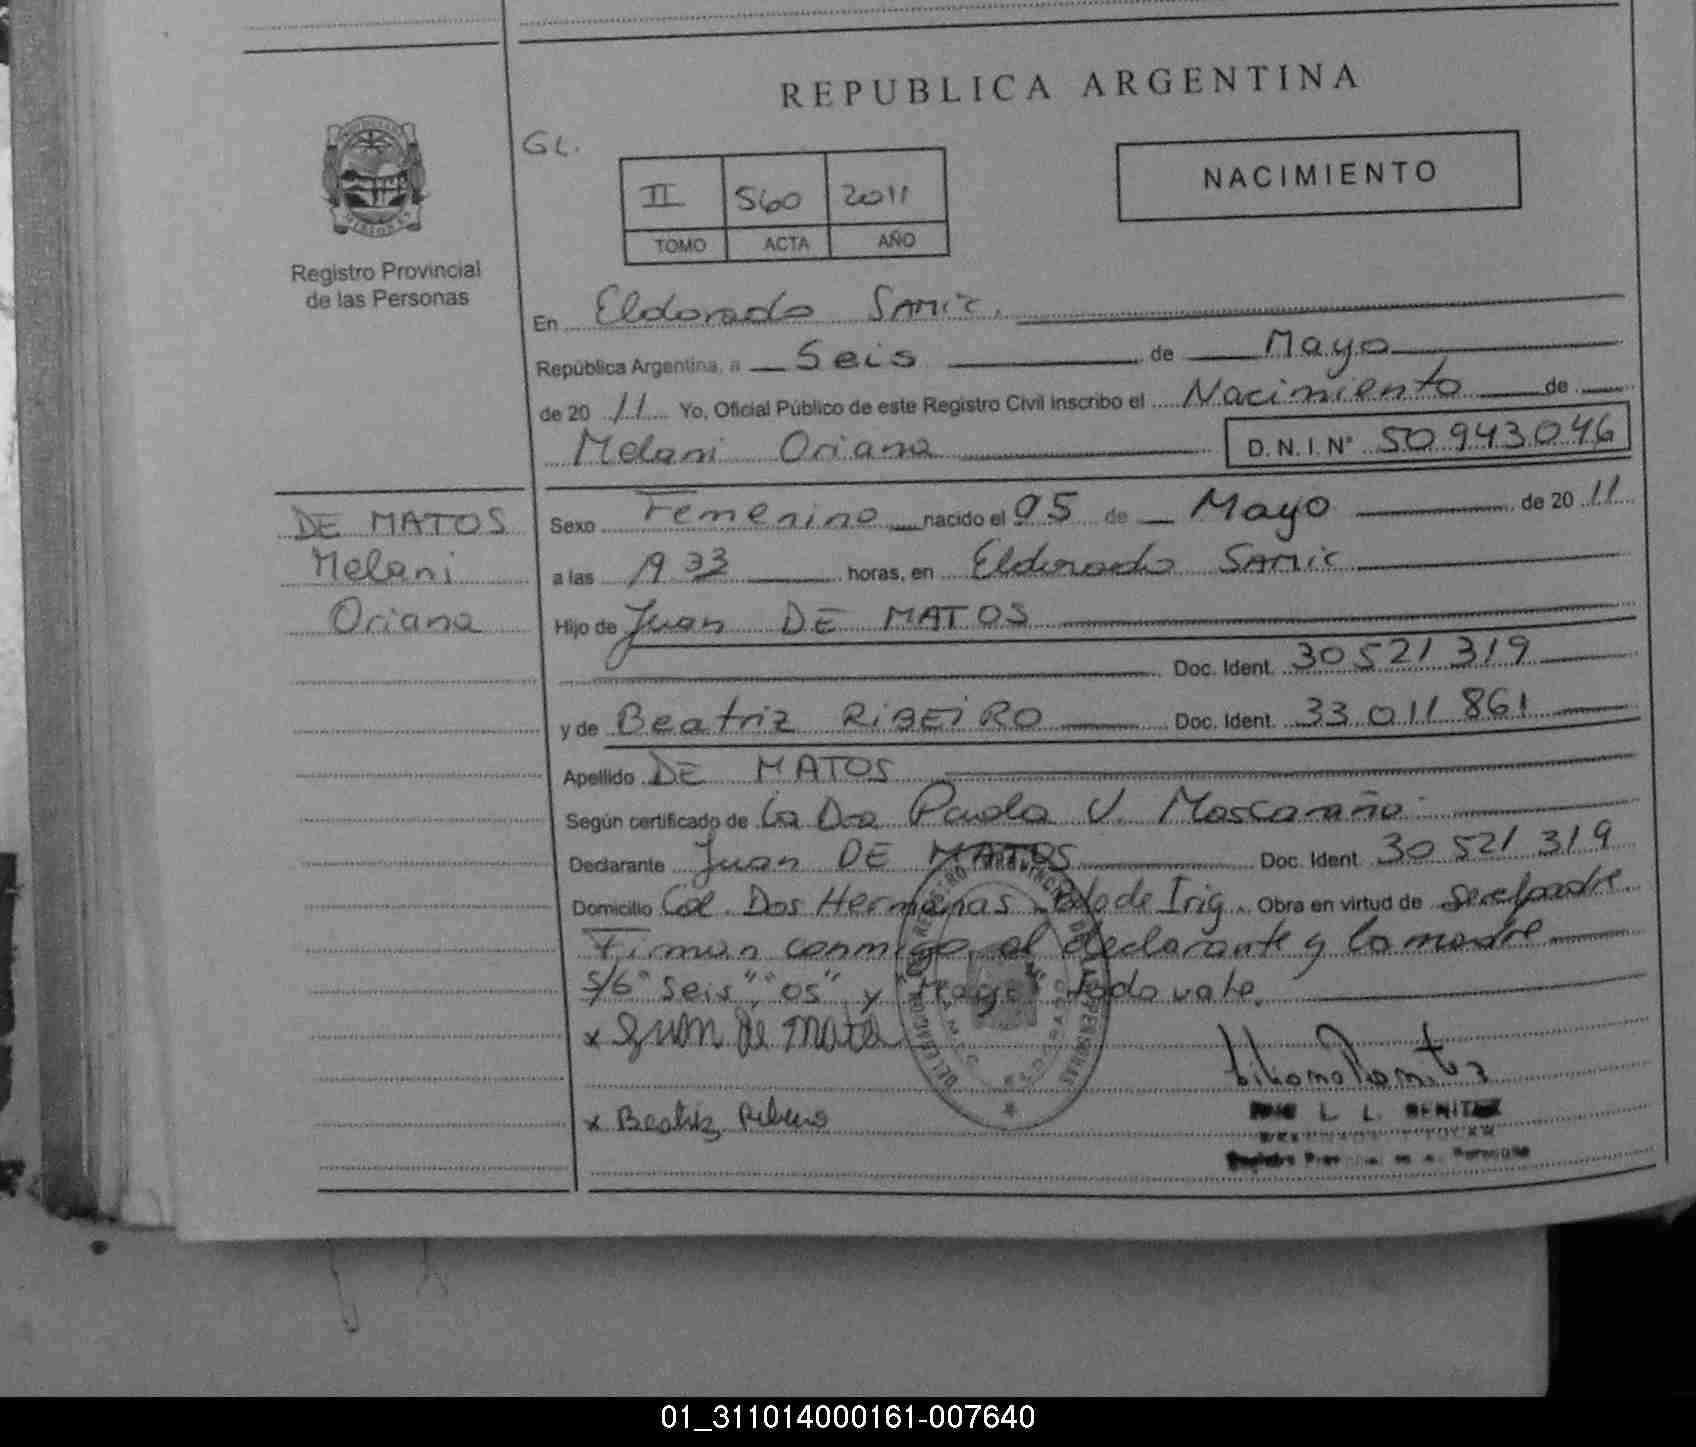 REPUBLICA ARGENTINA
GL.
NACIMIENTO
II 560 2011
TOMO ACTA AÑO
Registro Provincial
de las Personas
En Eldorado SAMIC.
República Argentina, a Seis de Mayo
de 20 11 Yo, Oficial Público de este Registro Civil Inscribo el Nacimiento de
Melani Oriana D.N.I. N° 50943046
DE MATOS
Melani
Oriana
Sexo Femenino nacido el 05 de Mayo de 20 11
a las 19 33 horas, en Eldorado SAMIC
Hijo de Juan DE MATOS
Doc. Ident. 30 521 319
y de Beatriz RIBEIRO Doc. Ident. 33 011 861
Apellido DE MATOS
Según certificado de La Dra Paola V. Moscaraño
Declarante Juan DE MATOS Doc. Ident. 30 521 319
Domicilio Col. Dos Hermanas Bdo de Irig. Obra en virtud de ser el padre
Firman conmigo el declarante y la madre
S/6 "Seis", "05" y "Mayo" todo vale.
x Juan de Mato
x Beatriz Ribeiro
L. L. BENITEZ
01_311014000161-007640